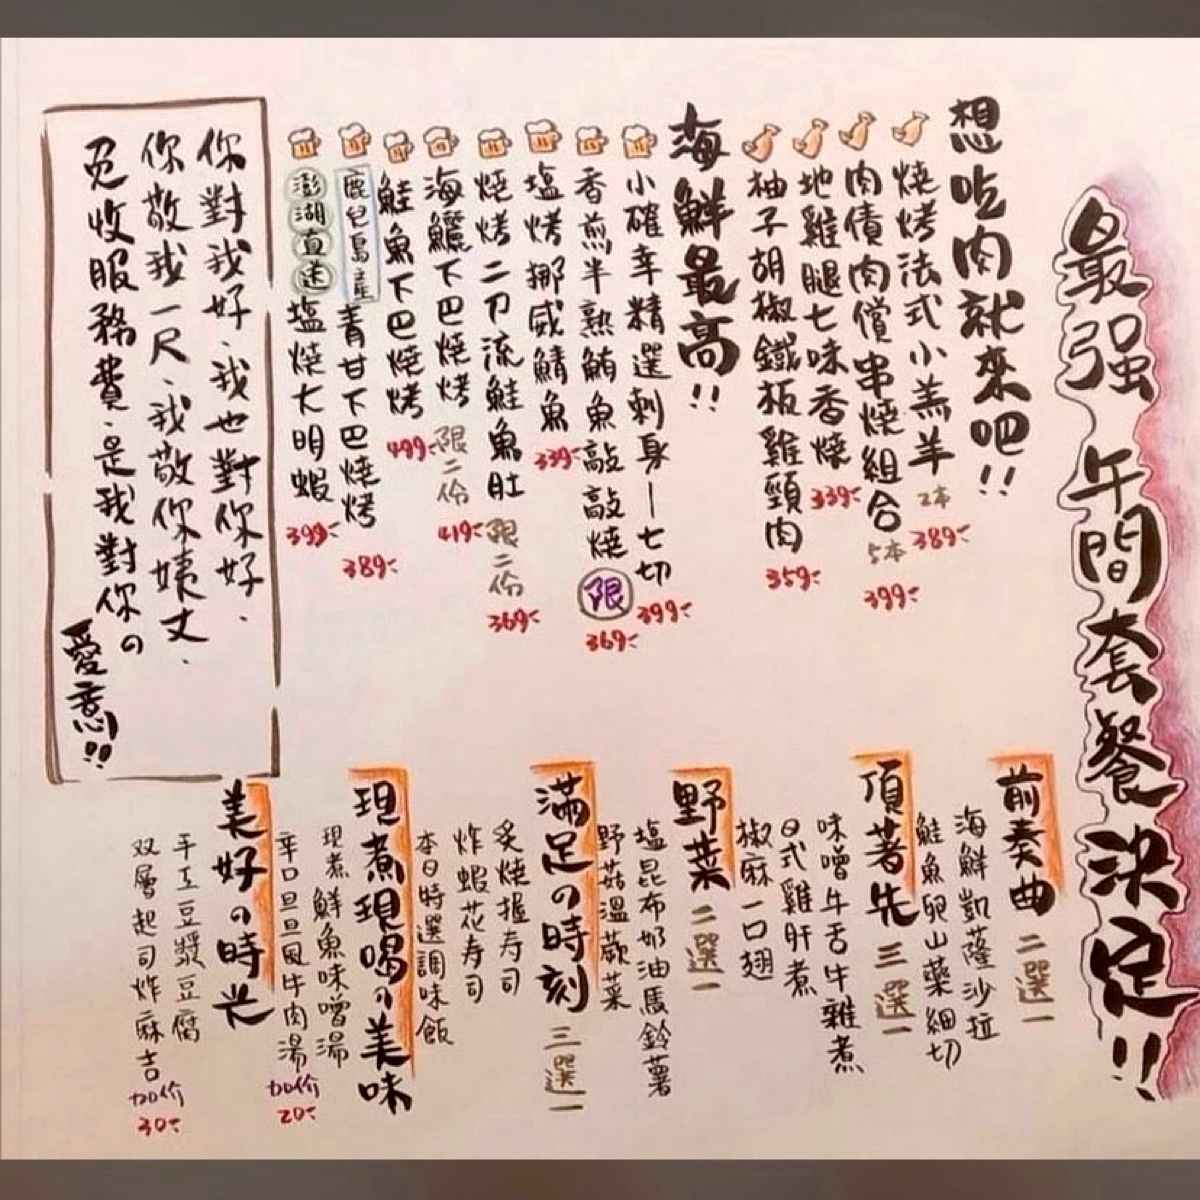 最强午間套餐決定!!
想吃肉就來吧!!
燒烤法式小羔羊 2本 389
肉債肉償串燒組合 5本 399
地雞腿七味香燒 339
柚子胡椒鐵板雞頸肉 359
海鮮最高!!
小確幸精選刺身一七切 399
香煎半熟鮪魚敲敲燒 限 369
塩烤挪威鯖魚 339
燒烤二刀流鮭魚肚 限二份 369
海鱺下巴燒烤 限二份 419
鮭魚下巴燒烤 499
鹿兒島產青甘下巴燒烤 389
澎湖直送塩燒大明蝦 399
你對我好、我也對你好.
你敬我一尺、我敬你姨丈.
免收服務費、是我對你の
愛意!!
前奏曲 二選一
海鮮凱薩沙拉
鮭魚卵山藥細切
頂著先 三選一
味噌牛舌牛雜煮
日式雞肝煮
椒麻一口翅
野菜 二選一
塩昆布奶油馬鈴薯
野菇溫蔬菜
滿足の時刻 三選一
炙燒握寿司
炸蝦花寿司
本日特選調味飯
現煮現喝の美味
現煮鮮魚味噌湯
辛口旦旦風牛肉湯 加价 20
美好の時光
手工豆漿豆腐
双層起司炸麻吉 加价 30